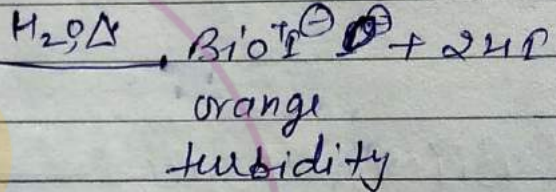 H₂O, Δ
BiO⁺I⁻ + 2HI
orange
turbidity